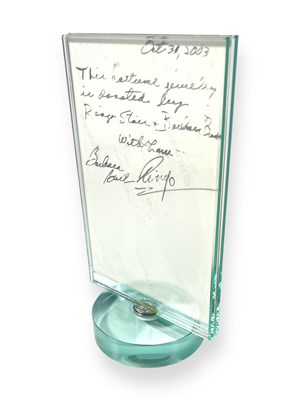 Oct 31, 2003
This national jewelry
is donated by
Ringo Starr + Barbara Bach
With Love
Barbara
Ringo